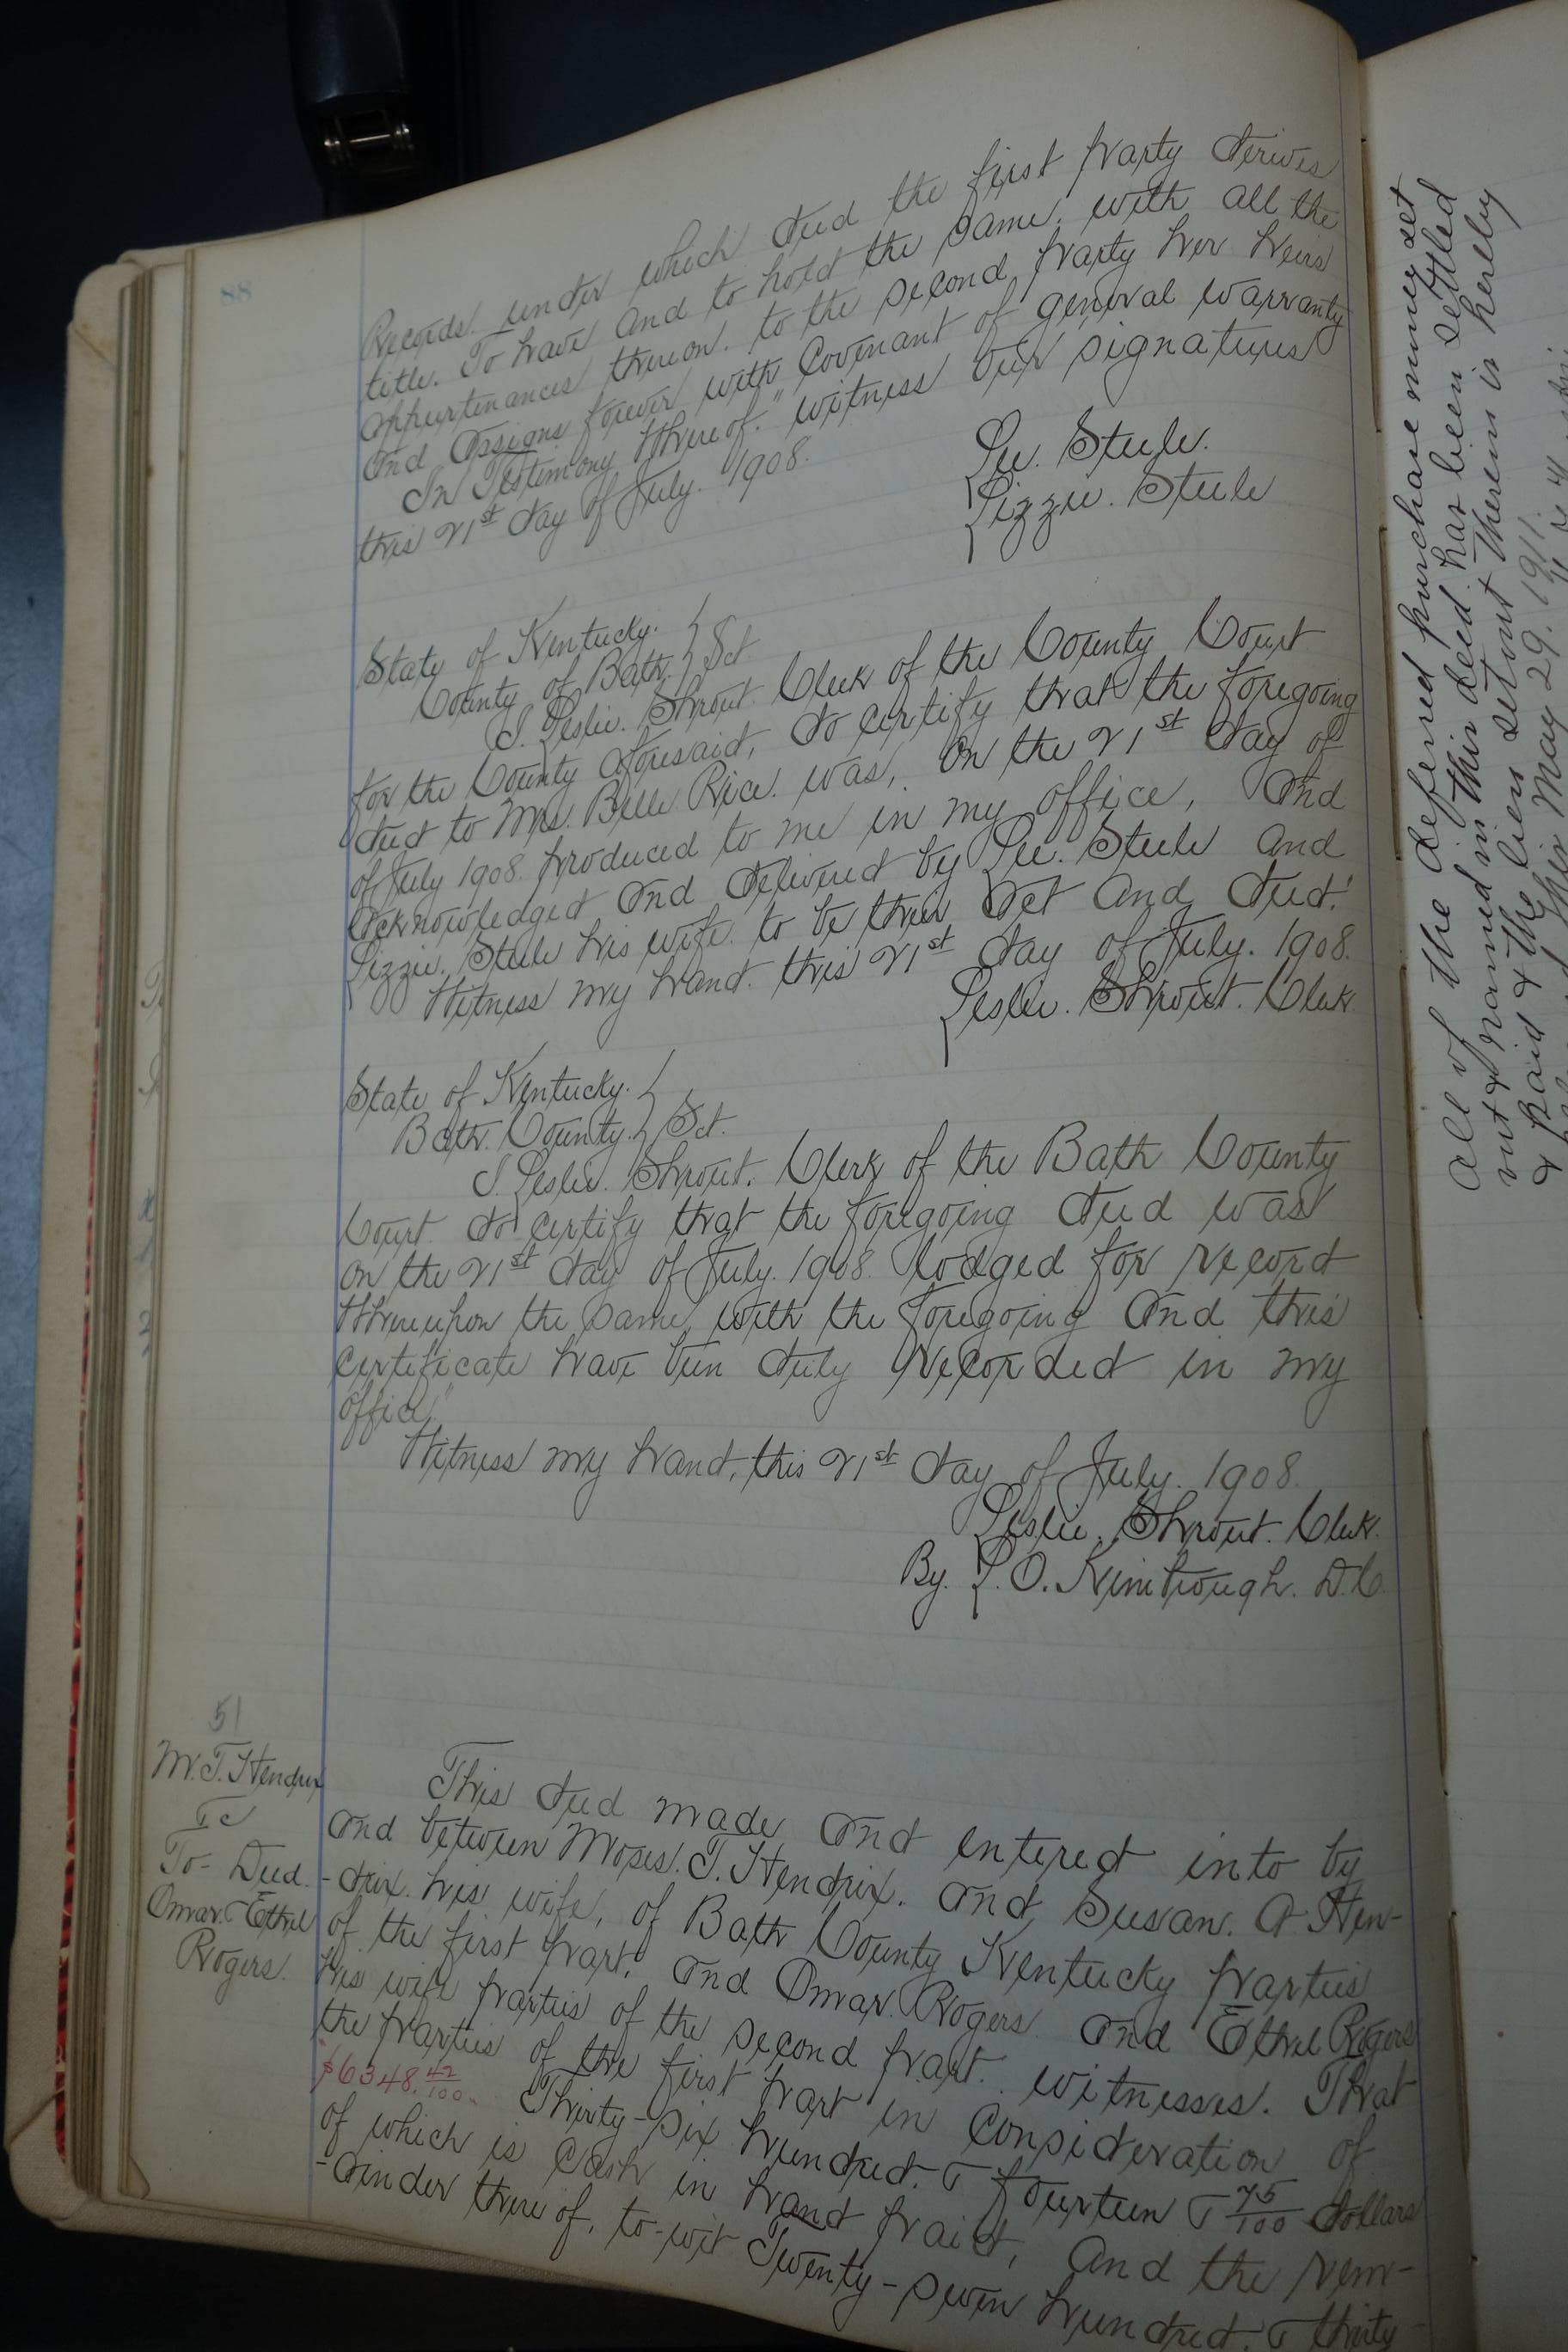 88
Records. under which deed the first party derives
title. To have and to hold the same. with all the
appurtenances thereon. to the second party her heirs
and assigns forever with Covenant of general warranty
In Testimony thereof." witness our signatures
this 21st day of July. 1908.
Lee. Steele.
Lizzie. Steele
State of Kentucky.
County of Bath } Sct
I. Leslie. Shrout. Clerk of the County Court
for the County aforesaid, do certify that the foregoing
deed to Mrs. Belle Rice. was, on the 21st day of
of July 1908. produced to me in my office, and
acknowledged and delivered by Lee. Steele and
Lizzie. Steele his wife. to be their act and deed."
Witness my hand. this 21st day of July. 1908.
Leslie. Shrout. Clerk
State of Kentucky.
Bath. County. } Sct.
I. Leslie. Shrout. Clerk of the Bath County
Court do certify that the foregoing deed was
on the 21st day of July. 1908. lodged for record
thereupon the same, with the foregoing and this
certificate have been duly recorded in my
office."
Witness my hand, this 21st day of July. 1908.
Leslie. Shrout. Clerk.
By. L. O. Kimbrough. D.C.
51
M. T. Hendrix
To- Deed.
Omar. & Ethel
Rogers.
This deed made and entered into by
and between Moses. T. Hendrix. and Susan. A Hen-
-drix. his wife, of Bath County Kentucky parties
of the first part, and Omar. Rogers. and Ethel Rogers
his wife parties of the second part. witnesses. That
the parties of the first part in consideration of
$6348.42/100. Thirty-six hundred. & fourteen & 75/100 dollars
of which is cash in hand paid, and the rem-
-ainder thereof, to-wit Twenty-seven hundred. & thirty-
All of the deferred purchase money set
out & named in this deed has been settled
& paid & the liens set out therein is hereby
May 29. 1911.